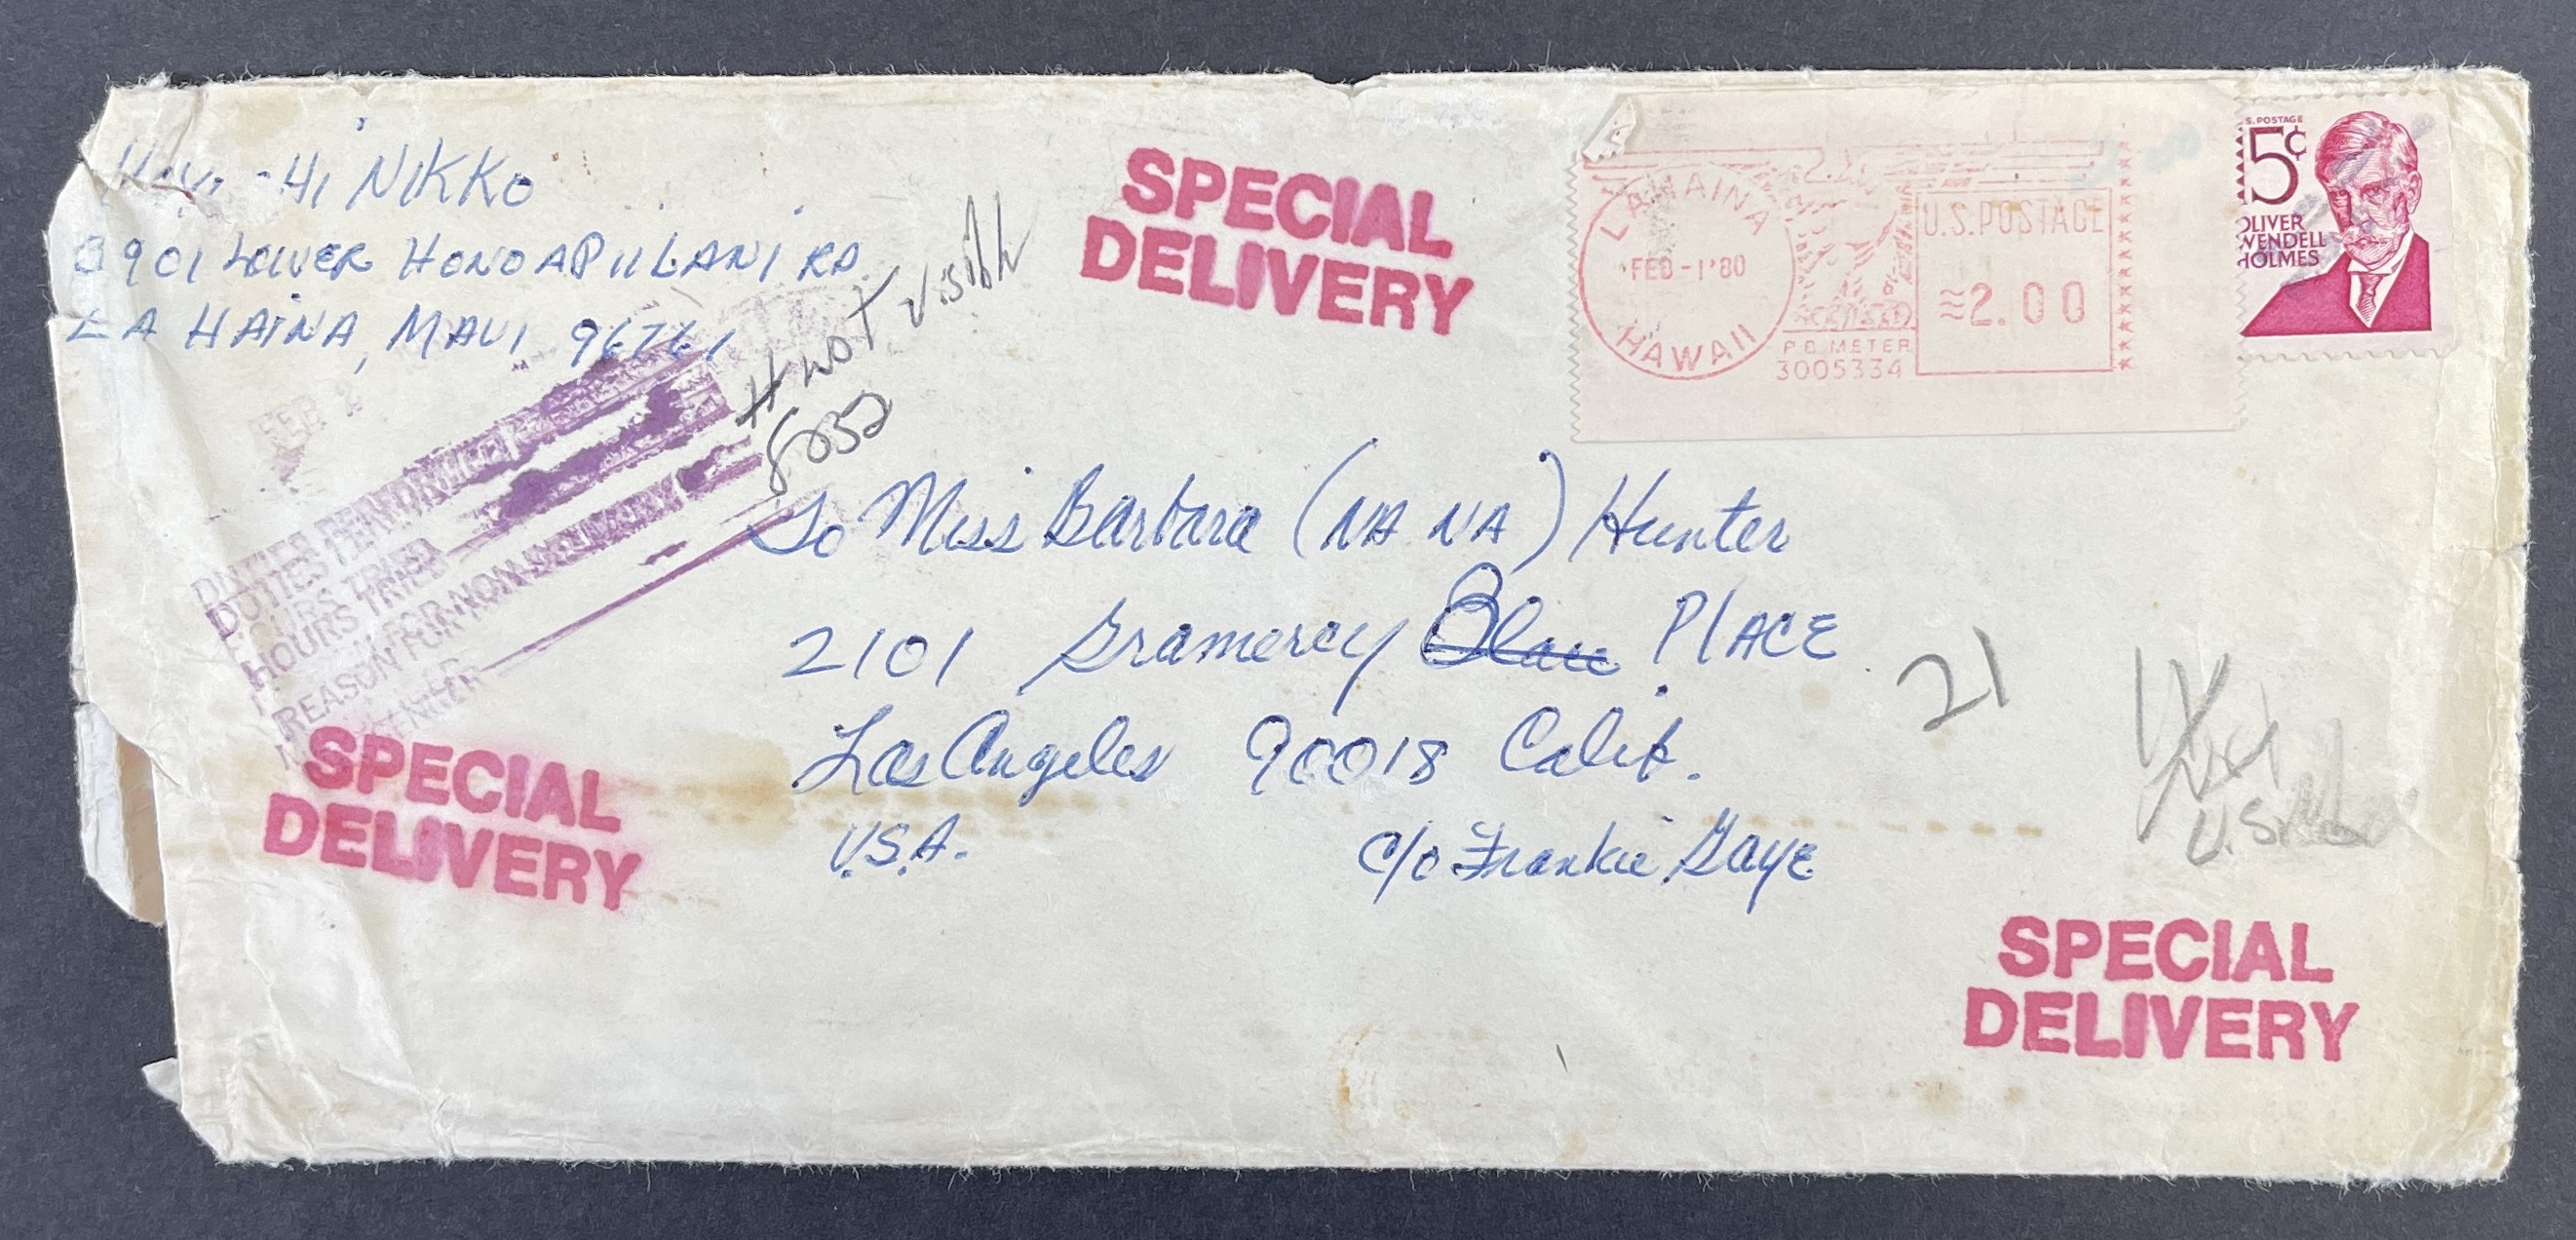 Hi NIKKO
3901 LOWER HONOAPIILANI RD
LA HAINA, MAUI 96761
# NOT Visible
FEB 2
DUTIES PERFORMED
HOURS TRIED
REASON FOR NON-DELIVERY
SPECIAL
DELIVERY
LAHAINA
FEB -1 '80
HAWAII
P.B. METER
3005334
U.S. POSTAGE
≈2.00
S. POSTAGE
15¢
OLIVER
WENDELL
HOLMES
To Miss Barbara (NA NA) Hunter
2101 Gramercy PLACE
Los Angeles 90018 Calif.
U.S.A. c/o Frankie Gaye
21
SPECIAL
DELIVERY
SPECIAL
DELIVERY